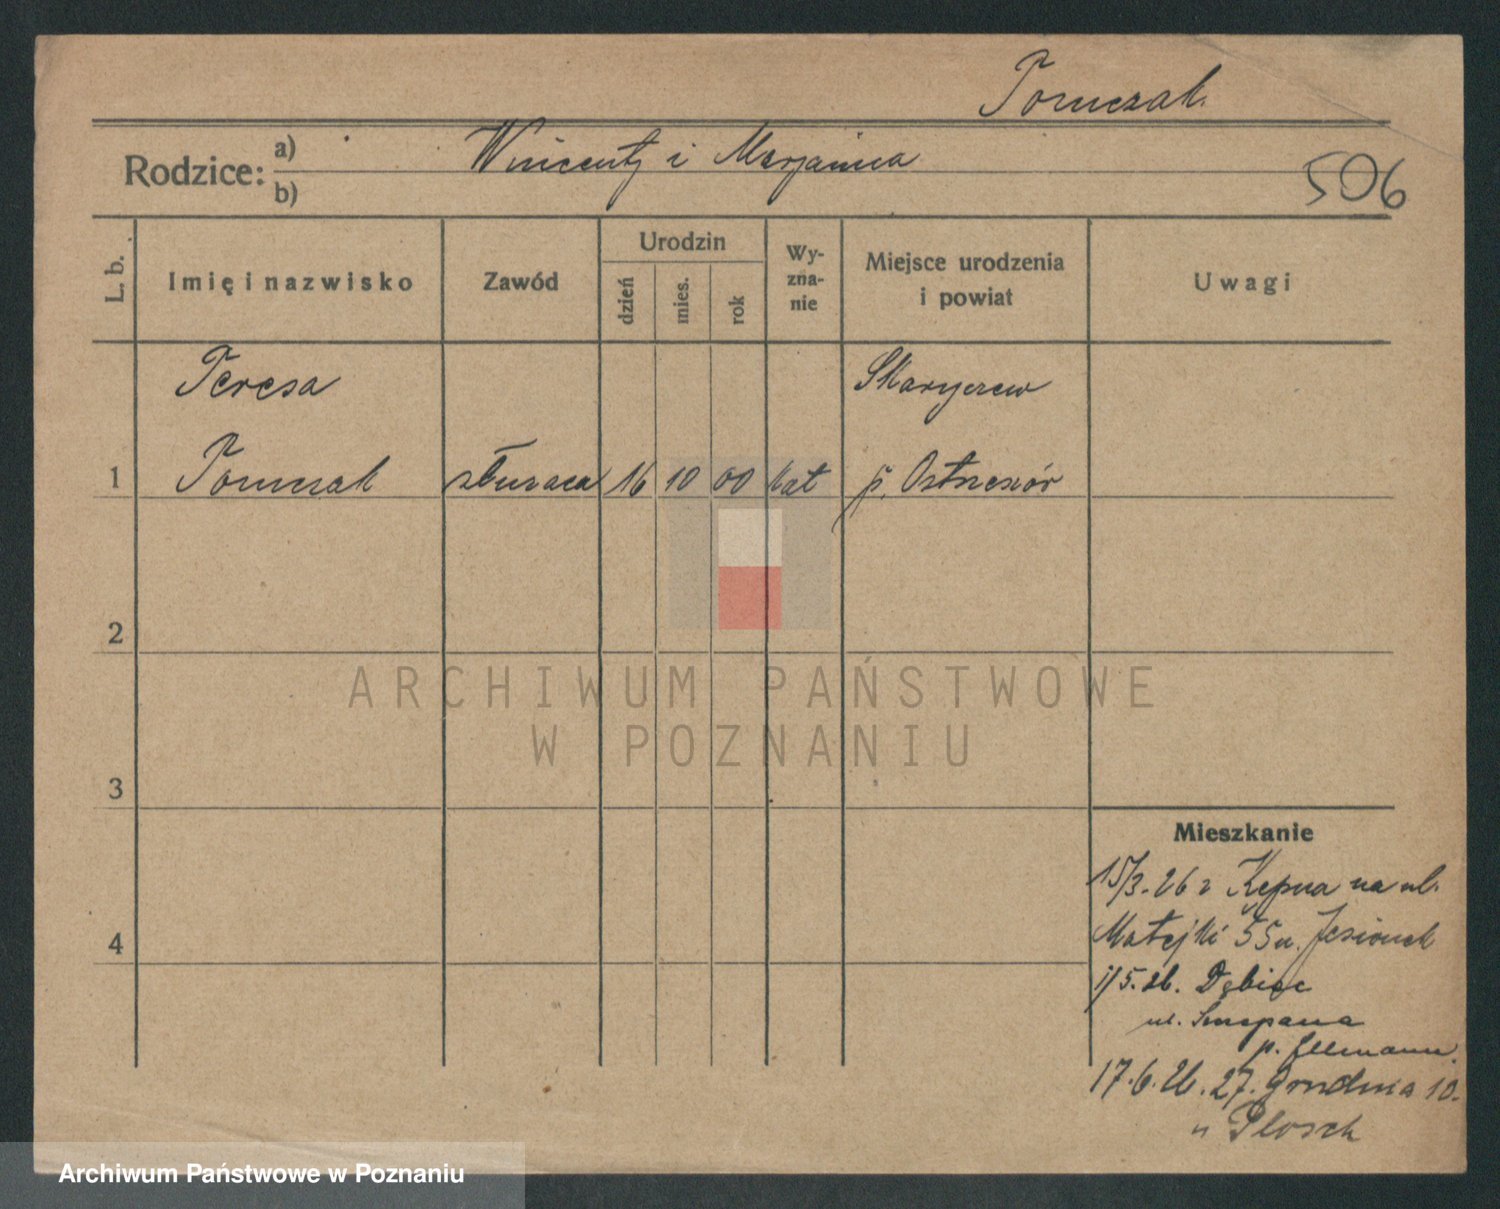 Tomczak.
Rodzice: a) b) Wincenty i Marjanna
506
L. b.
Imię i nazwisko
Zawód
Urodzin
dzień
mies.
rok
Wy-
zna-
nie
Miejsce urodzenia
i powiat
Uwagi
Teresa Skaryszew
1 Tomczak służaca 16 10 00 kat p. Ostrzeszów
2
ARCHIWUM PAŃSTWOWE
W POZNANIU
3
Mieszkanie
15/3.26 z Kępna na ul.
4
Matejki 55 u. Jesionek
1/5.26. Dębiec
ul. Szczepana
p.
17.6.26. 27. Grudnia 10.
u Plosch
Archiwum Państwowe w Poznaniu